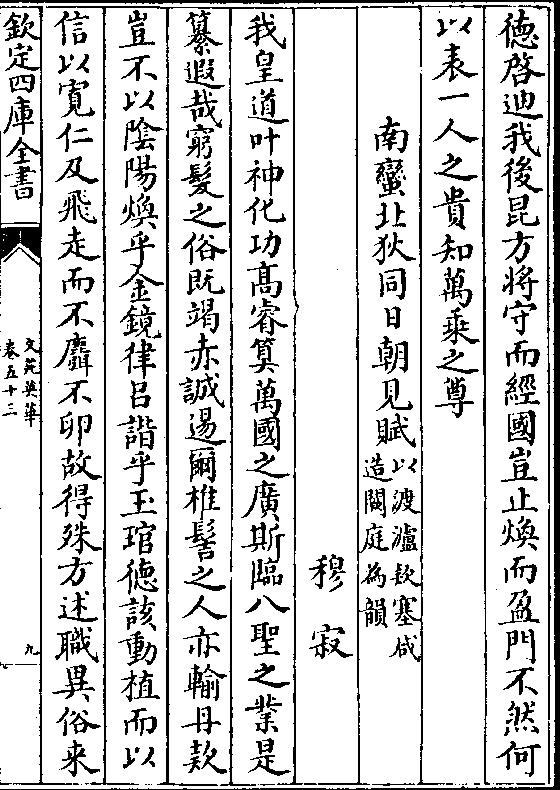 德啓迪我後昆方將守而經國豈止煥而盈門不然何
以表一人之貴知萬乘之尊
南蠻北狄同日朝見賦以渡瀘欵塞咸造闕庭為韻
穆寂
我皇道叶神化功高睿算萬國之廣斯臨八聖之業是
纂遐哉窮髮之俗既竭赤誠逷爾椎髻之人亦輸丹欵
豈不以陰陽煥乎金鏡律呂諧乎玉琯德該動植而以
信以寬仁及飛走而不麛不卵故得殊方述職異俗来
欽定四庫全書
文苑英華
卷五十三
九